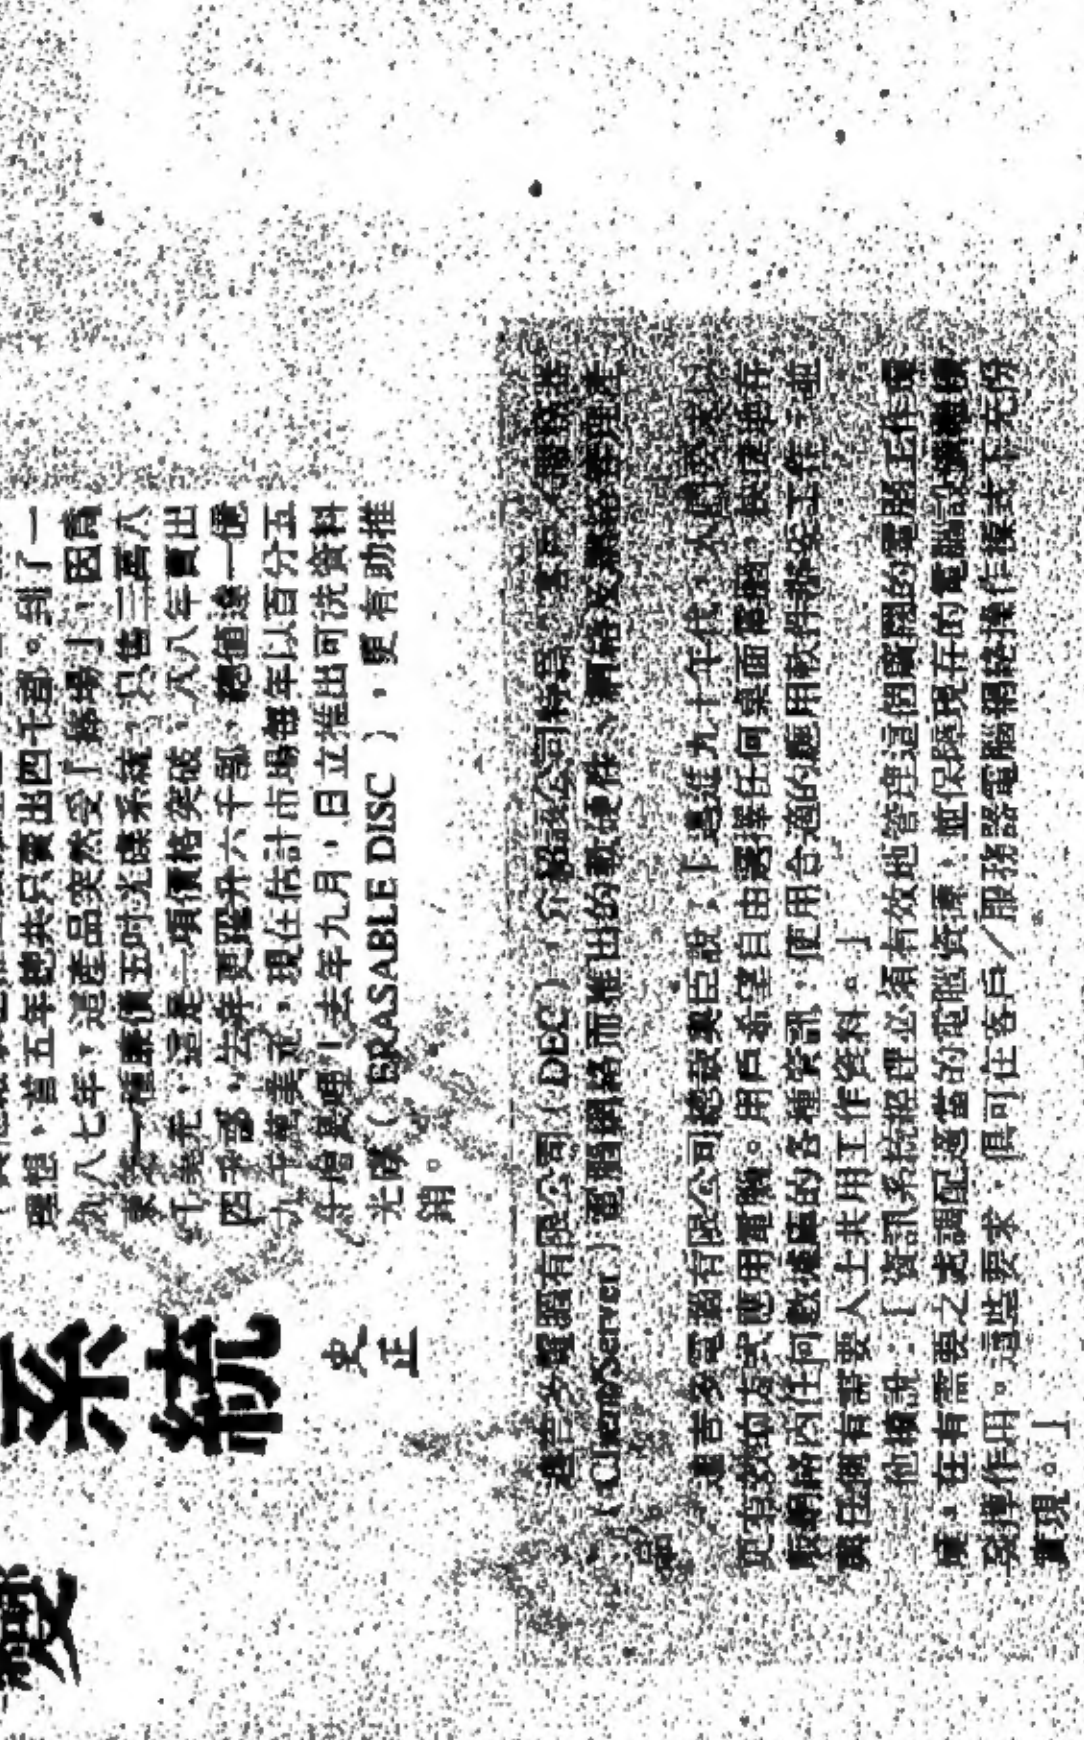 變
系統
史正
理想，首五年總共只賣出四千部。到了一
九八七年，這產品突然受「歡場」，因爲
一種廉價五吋光碟系統，只售三萬六
千美元，這是一項價格突破，八八年賣出
四千部，去年更躍升六千部，總值達一億
九千萬美元，現在估計市場每年以百分五
十增長哩！去年九月，日立推出可洗資料
光碟（ERASABLE DISC），更有助推
銷。
電腦有限公司（DEC）介紹該公司特爲客戶
（Client/Server）電腦網絡而推出的軟硬件、網絡及系統管理產
品。
電腦有限公司總裁 說：「邁進九十年代，人們要求以
更有效的方式應用電腦。用戶希望自由選擇任何桌面電腦，快速地存
取網絡內任何數據區的各種資訊；使用合適的應用軟件辦妥工作；並
與任何有需要人士共用工作資料。」
他續說：「資訊系統經理必須有效地管理這個廣闊的電腦工作環
境，在有需要之處調配適當的電腦資源；並保障現存的電腦設備
發揮作用。這些要求，俱可在客戶／服務器電腦網絡操作模式下充份
實現。」